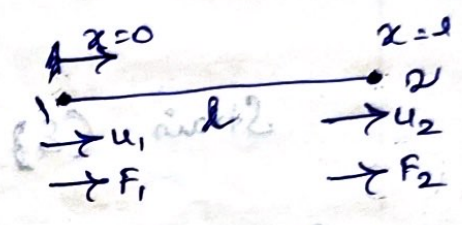 x=0 x=l
1 l 2
→ u₁ → u₂
→ F₁ → F₂